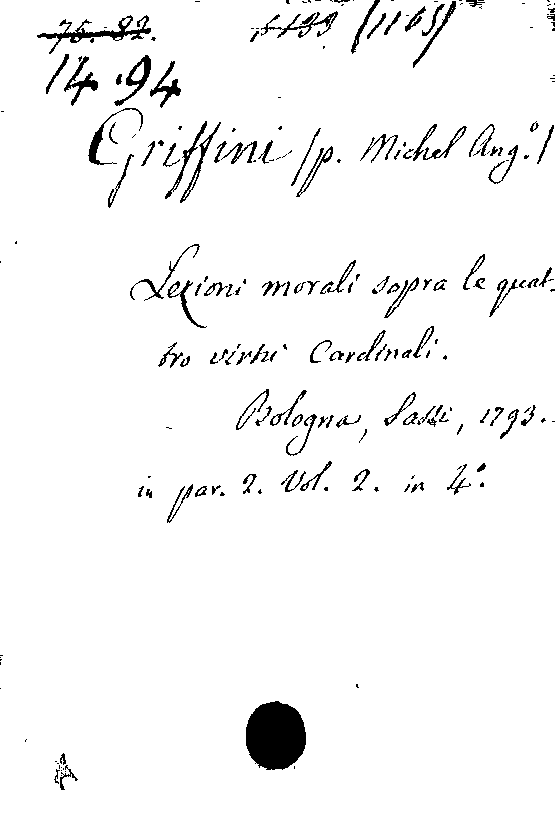 75. 82. (1165)
14.94
Griffini /p. Michel Ang.º/
Lezioni morali sopra le quat-
tro virtù Cardinali.
Bologna, Sassi, 1793.
in par. 2. Vol. 2. in 4º.